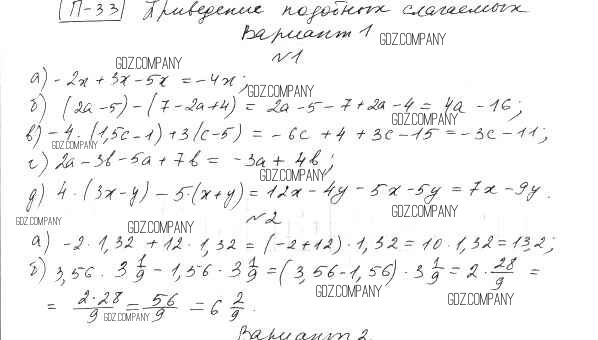 П-33 Приведение подобных слагаемых
Вариант 1
GDZ.COMPANY
№1
GDZ.COMPANY
а) -2x + 3x - 5x = -4x;
GDZ.COMPANY
б) (2a - 5) - (7 - 2a + 4) = 2a - 5 - 7 + 2a - 4 = 4a - 16;
GDZ.COMPANY
в) -4 · (1,5c - 1) + 3(c - 5) = -6c + 4 + 3c - 15 = -3c - 11;
GDZ.COMPANY
г) 2a - 3b - 5a + 7b = -3a + 4b;
GDZ.COMPANY
д) 4 · (3x - y) - 5 · (x + y) = 12x - 4y - 5x - 5y = 7x - 9y.
GDZ.COMPANY
№2
GDZ.COMPANY
GDZ.COMPANY
а) -2 · 1,32 + 12 · 1,32 = (-2 + 12) · 1,32 = 10 · 1,32 = 13,2;
б) 3,56 · 3 1/9 - 1,56 · 3 1/9 = (3,56 - 1,56) · 3 1/9 = 2 · 28/9 =
GDZ.COMPANY
GDZ.COMPANY
= 2·28/9 = 56/9 = 6 2/9.
GDZ.COMPANY
Вариант 2.